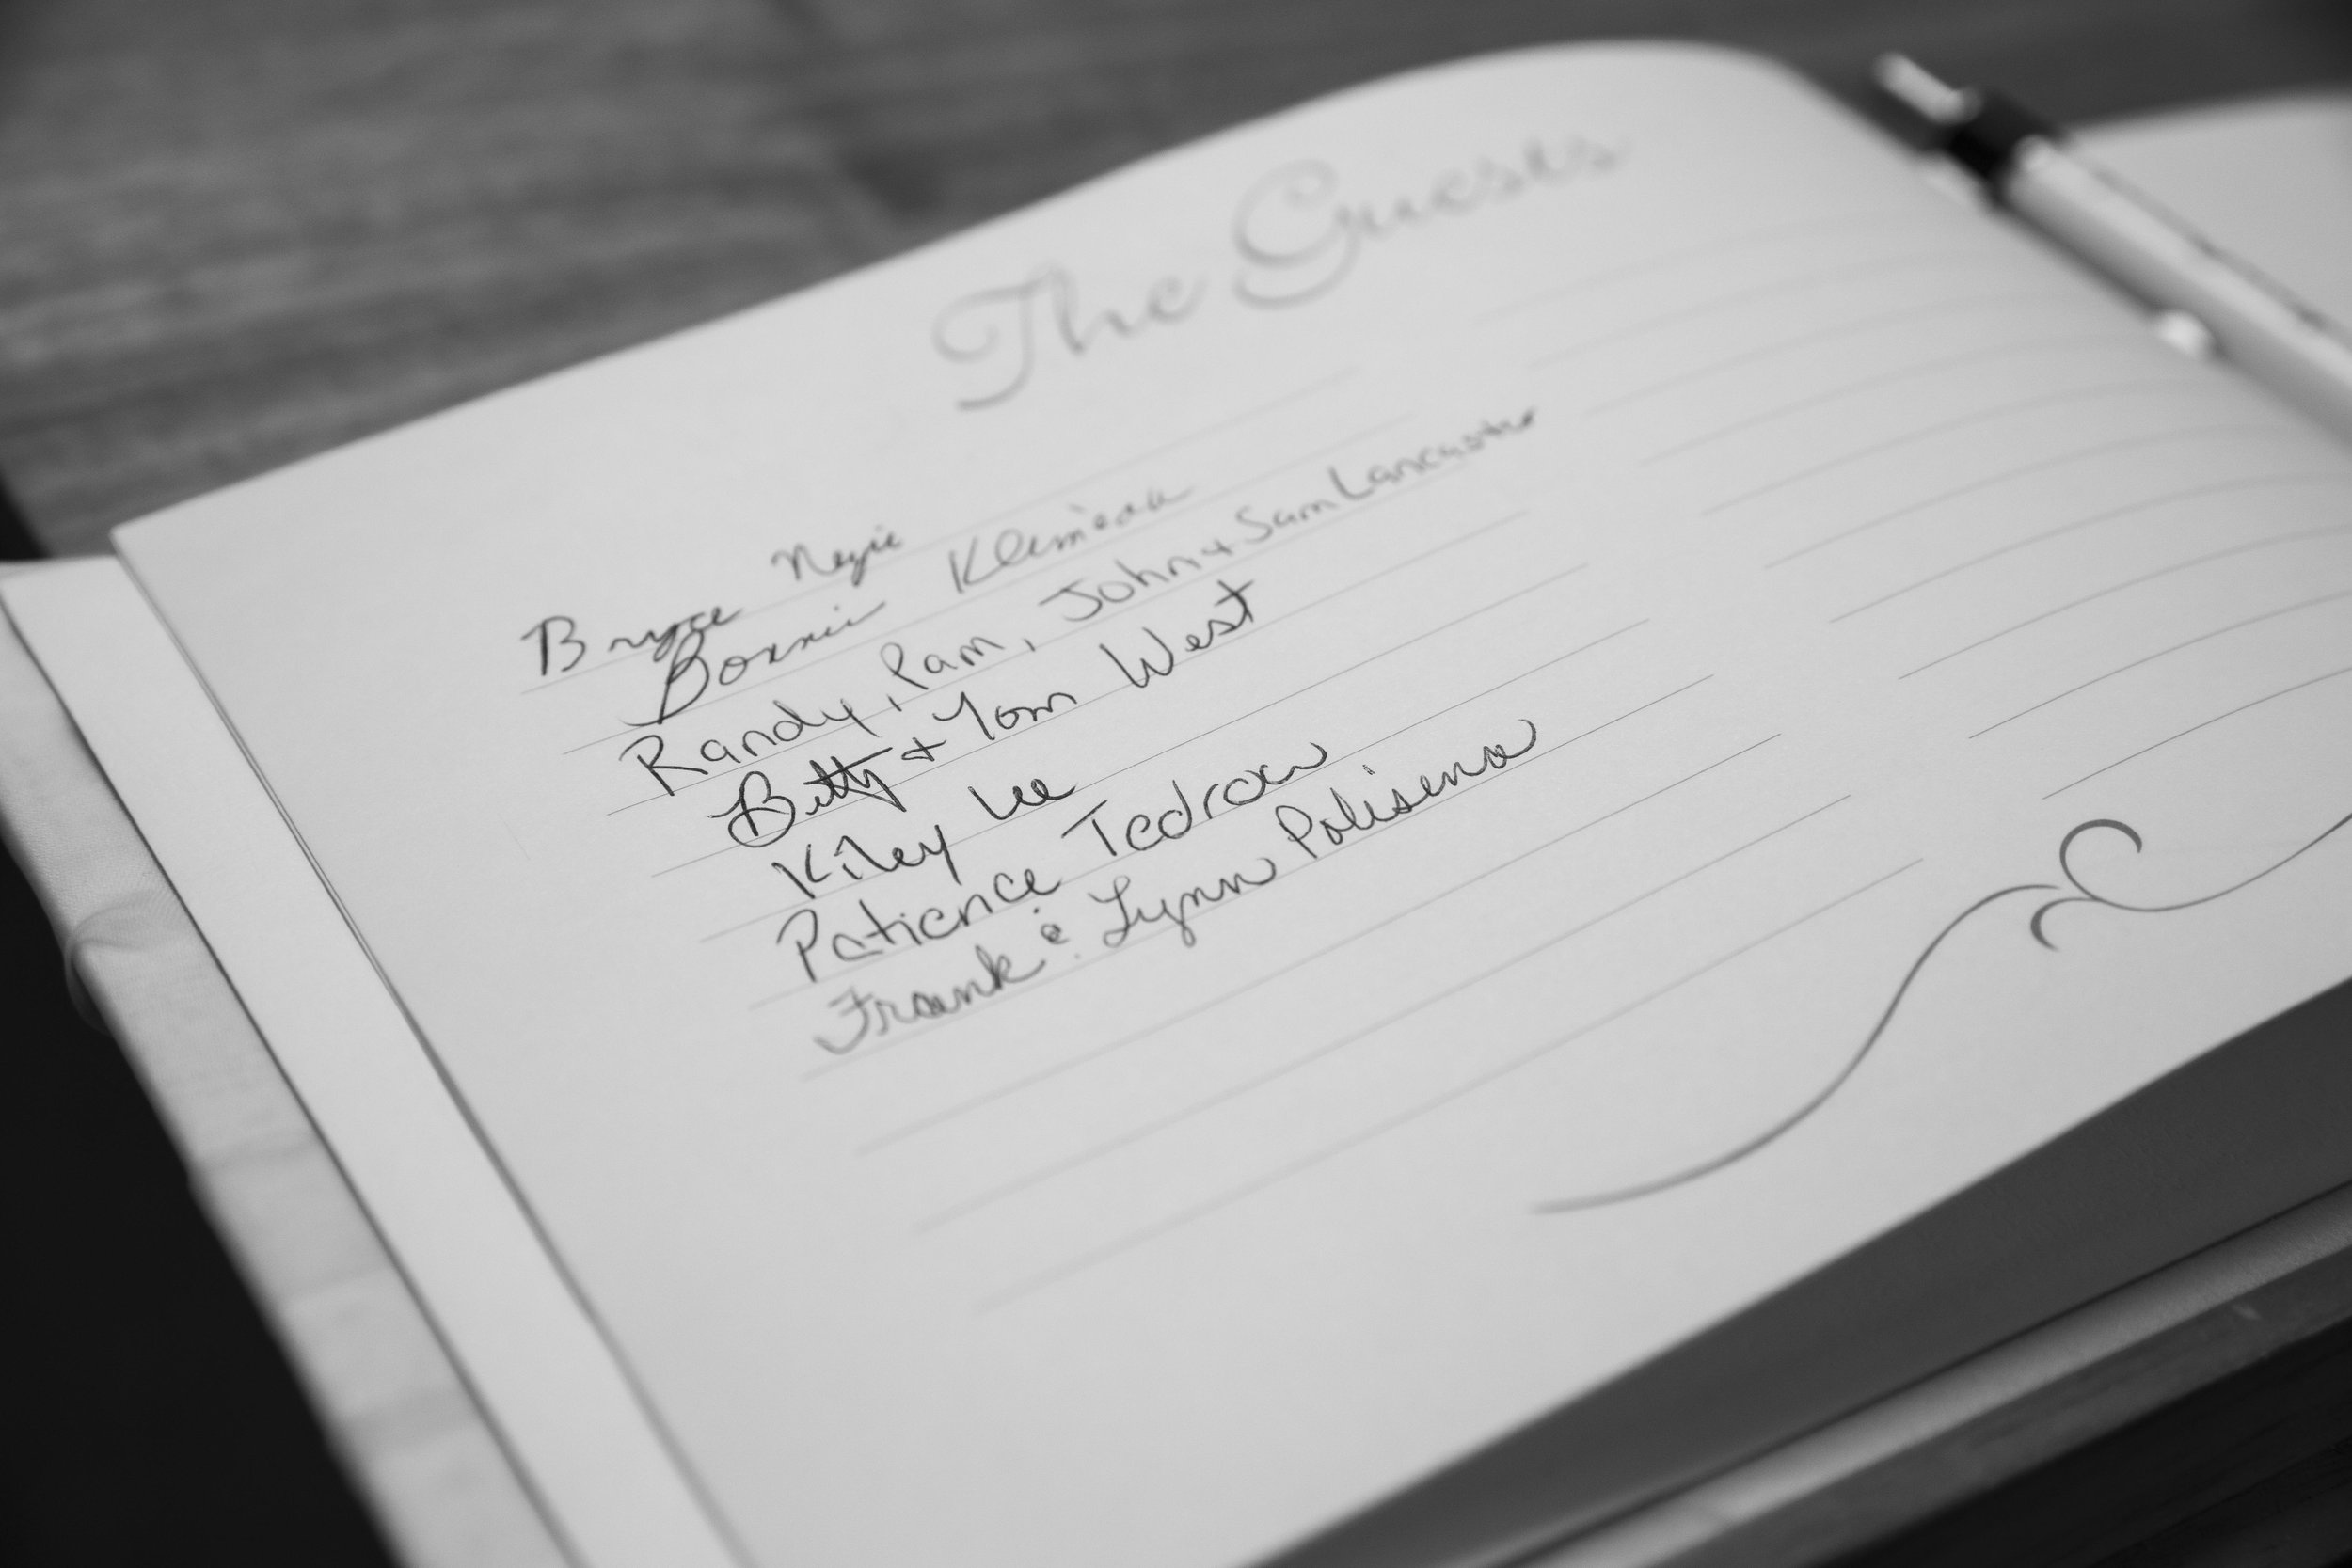 The Guests
Bryce
Bonnie
Randy, Pam, John + Sam Lancaster
Betty + Tom West
Kiley Lee
Patience Tedrow
Frank & Lynn Polisena